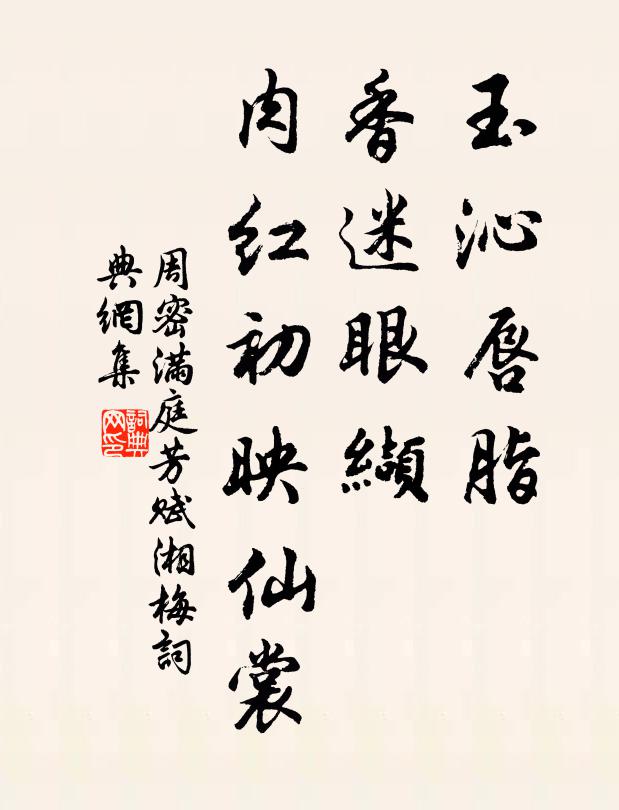 玉沁唇脂
香迷眼纈
肉红初映仙裳
周密满庭芳赋湘梅詞
典網集
詞典
网印